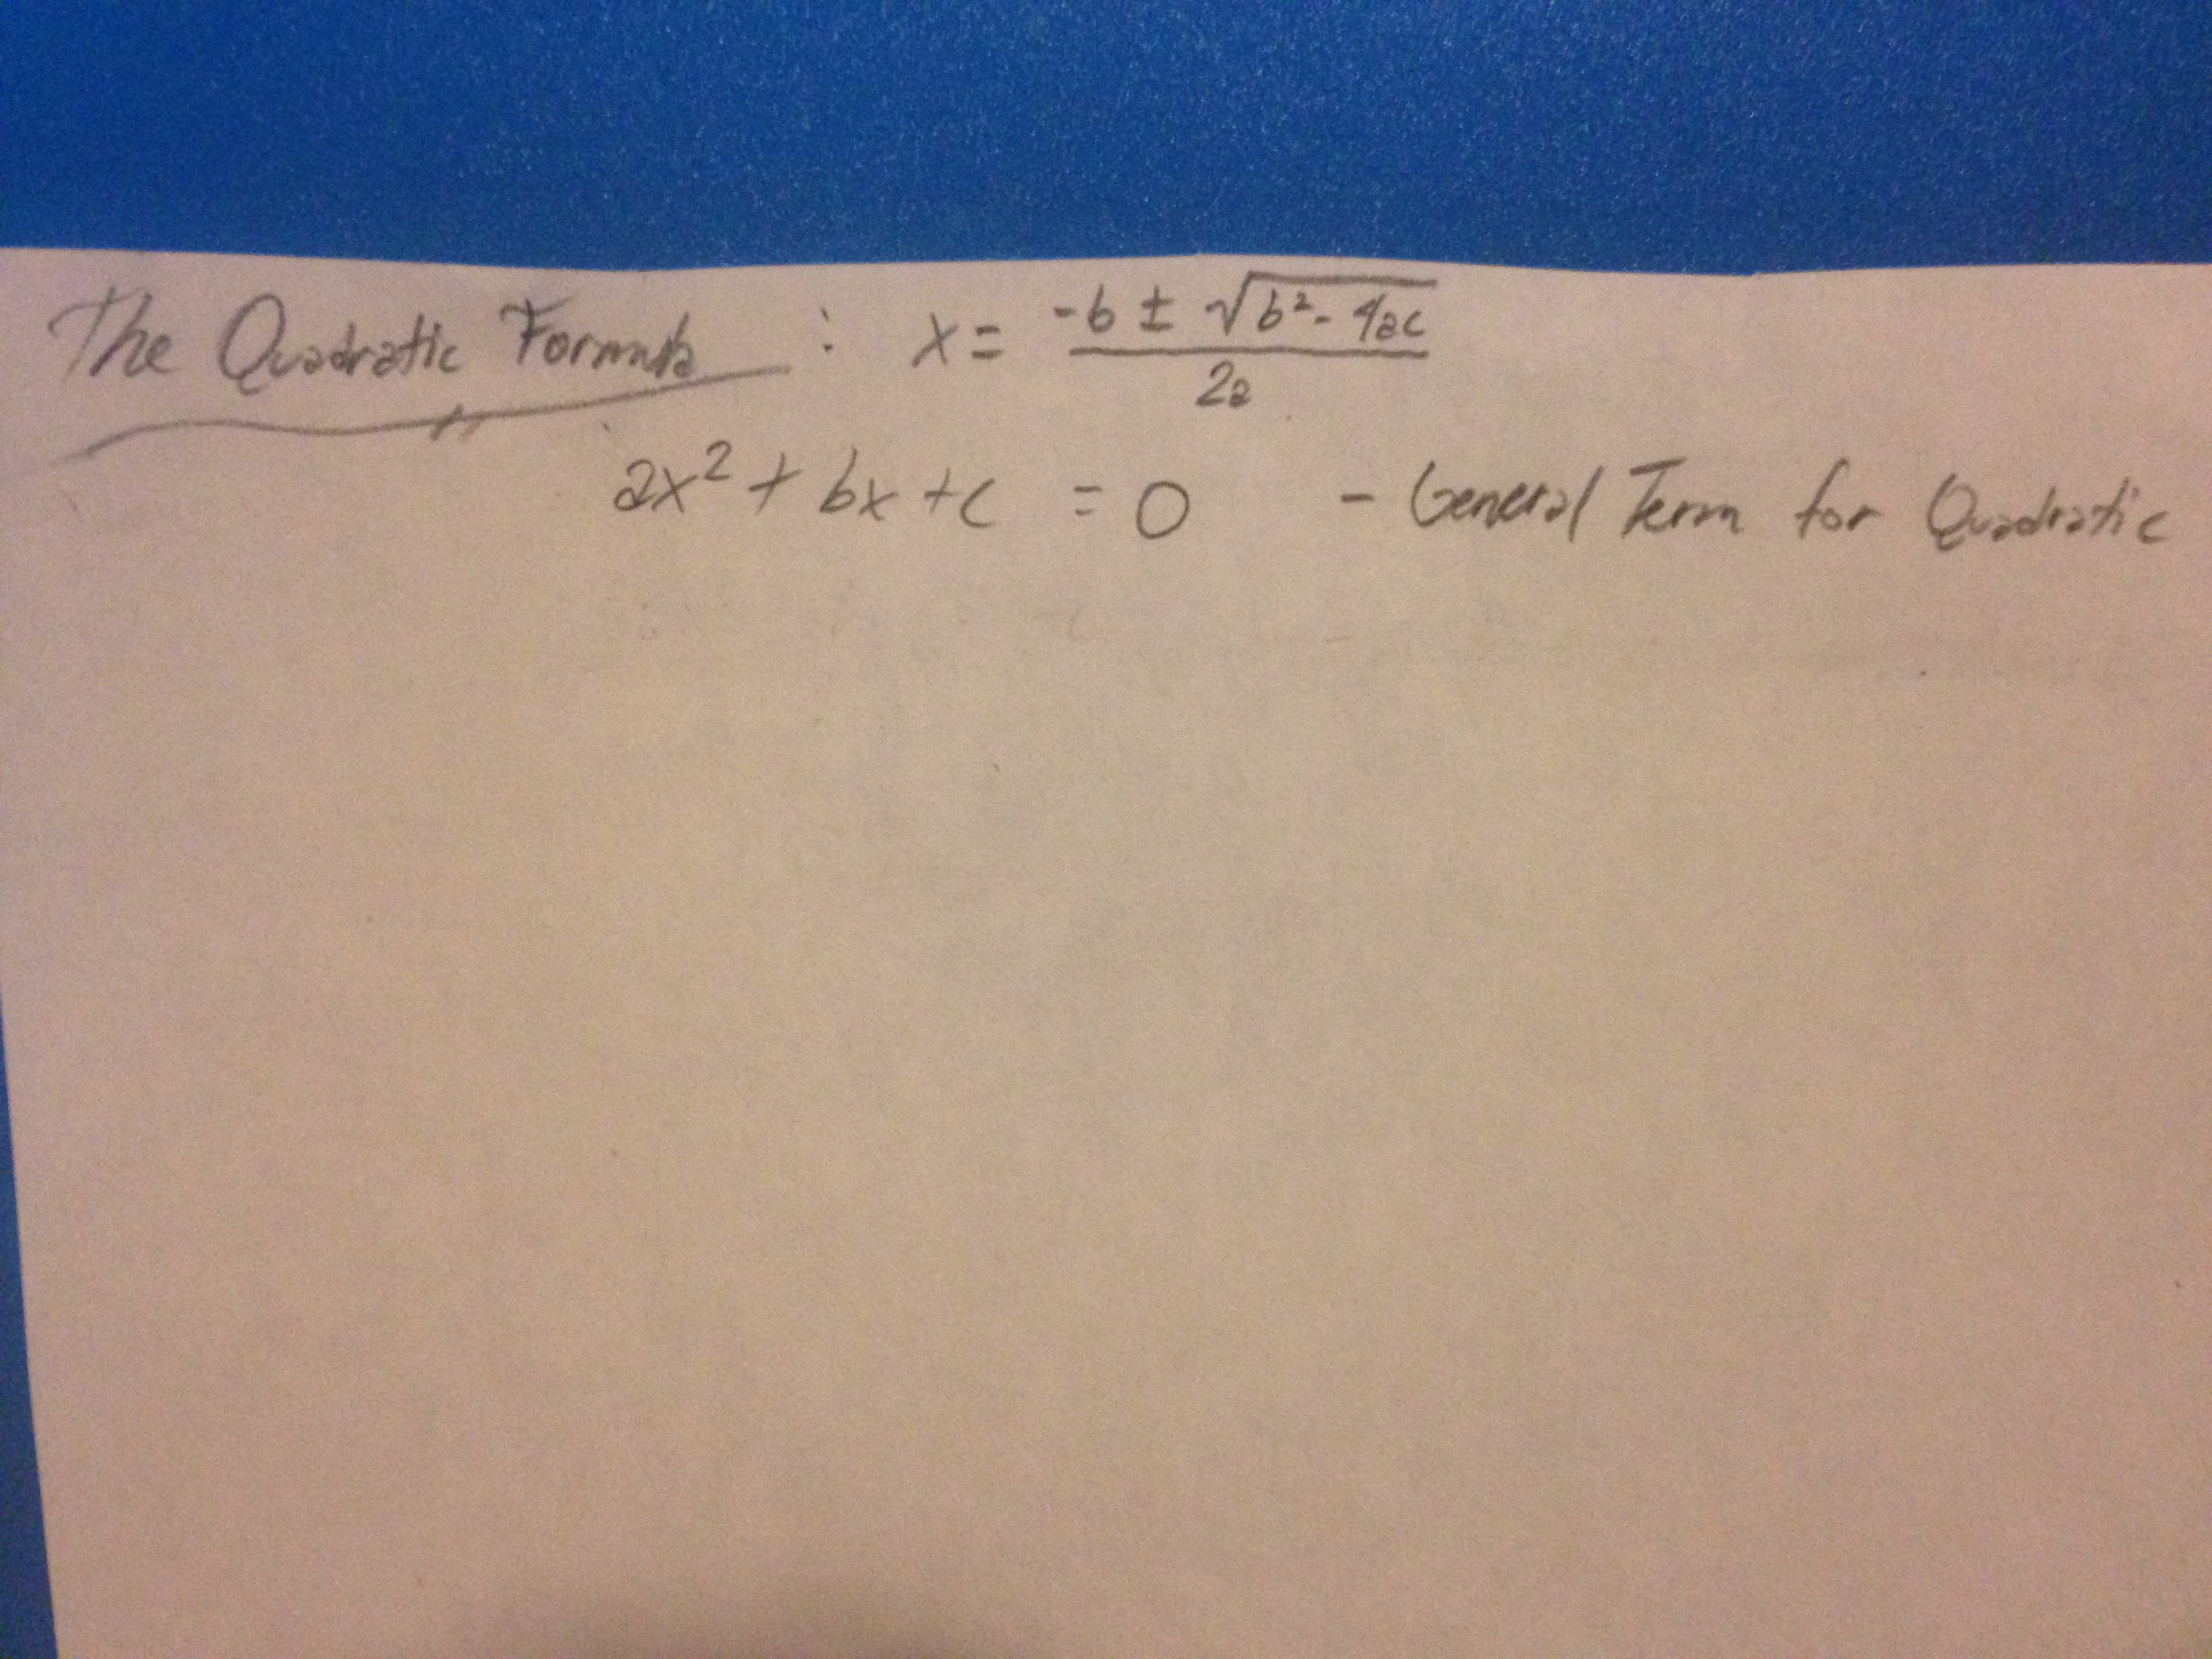 The Quadratic Formula : x = -b ± √b² - 4ac / 2a
ax² + bx + c = 0 - General Term for Quadratic